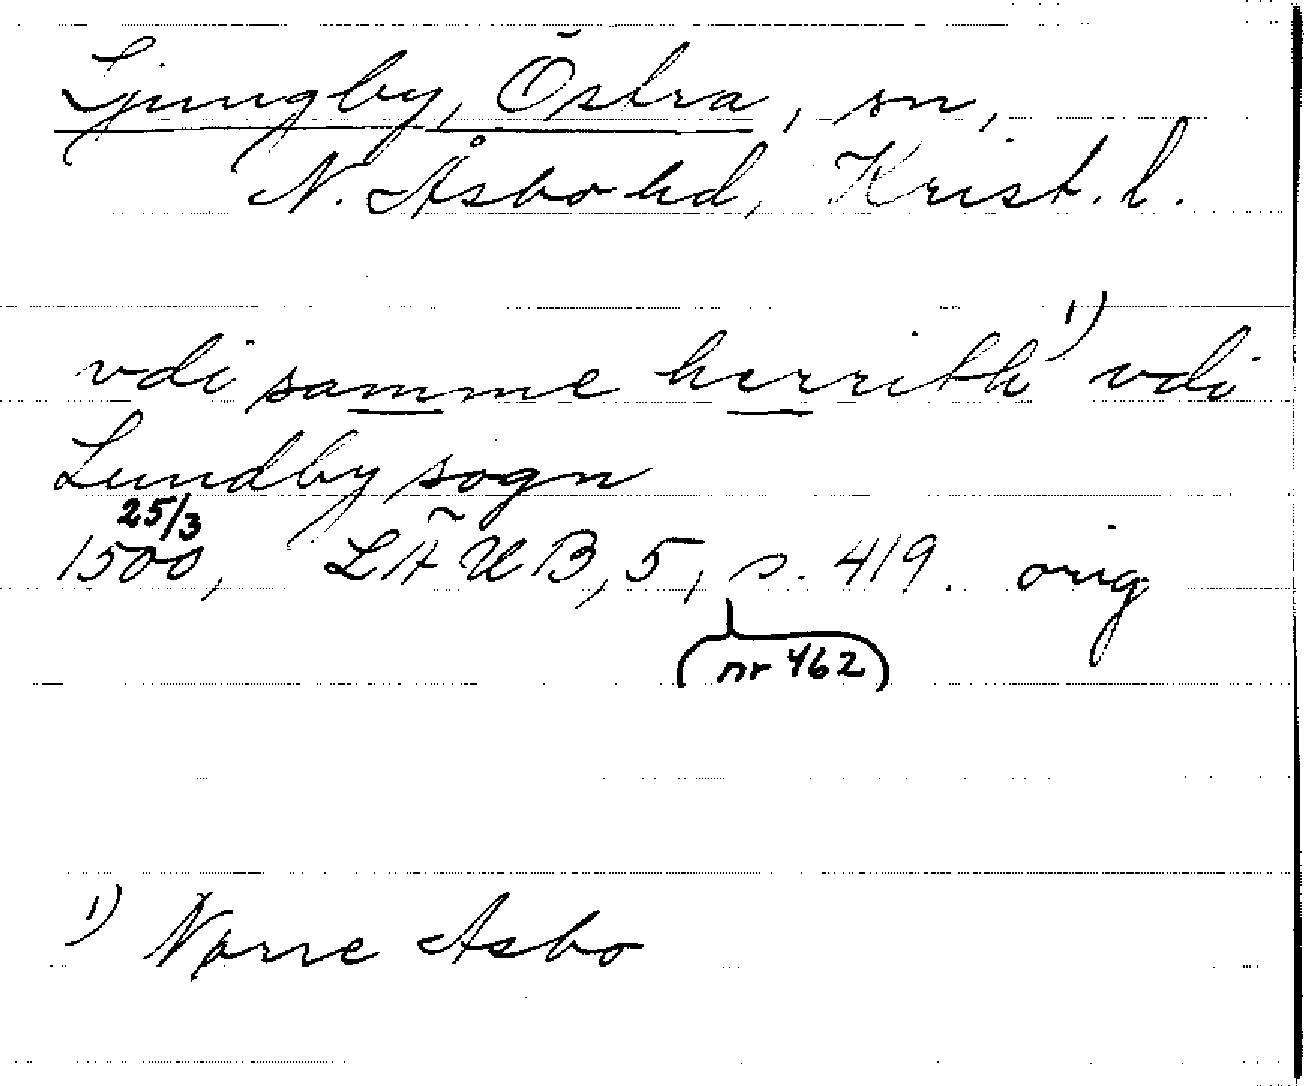 Ljungby, Östra, sn,
N. Åsbo hd, Krist. l.
vdi samme herrith 1) vdi
Lundby sogn
25/3
1500, LÄUB, 5, s. 419. orig
(nr 462)
1) Nørre Asbo